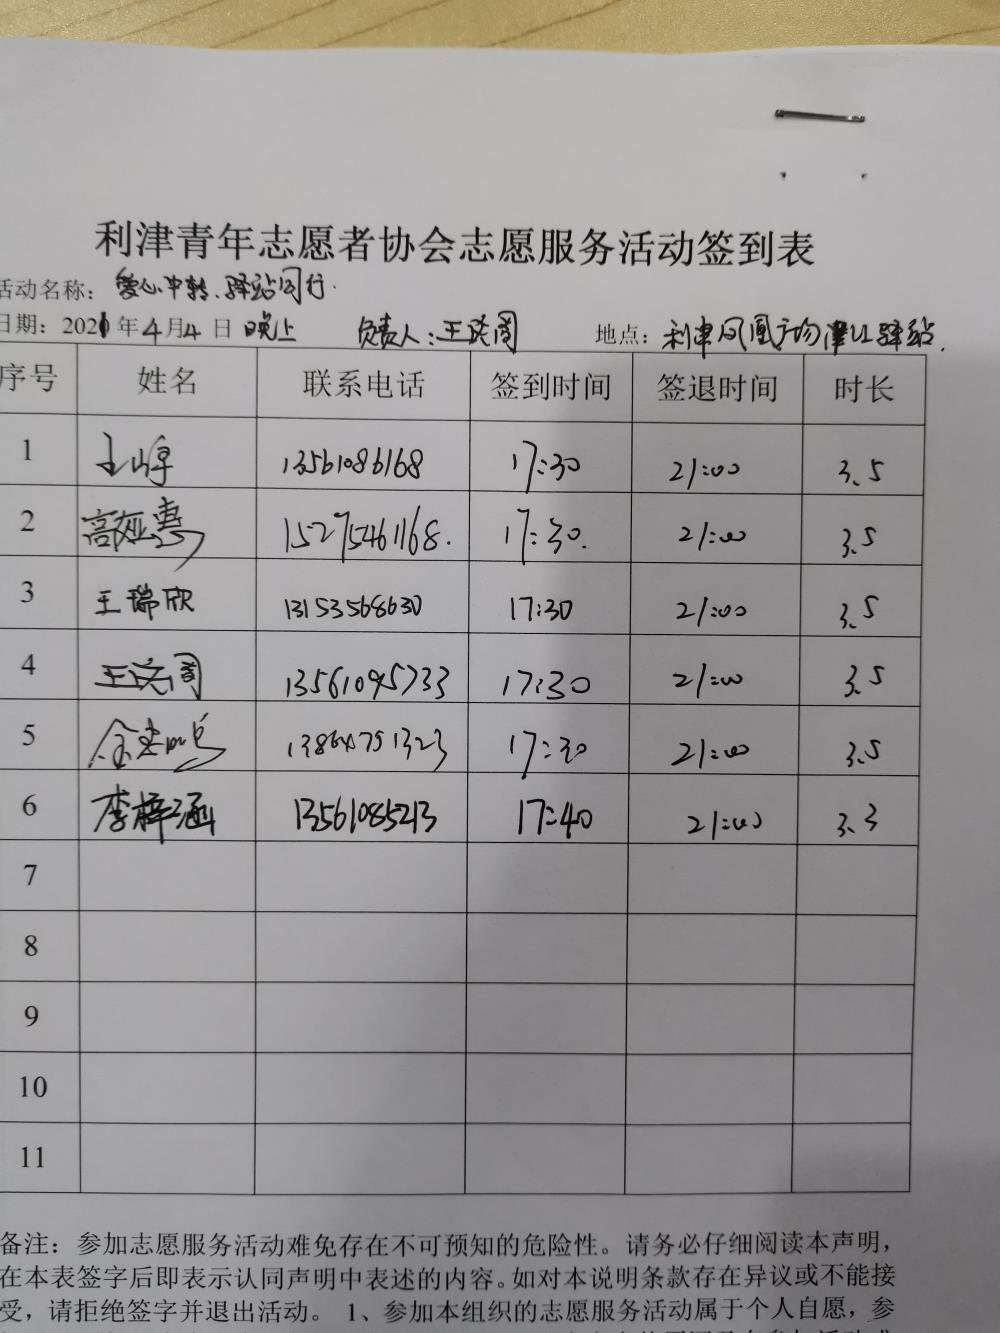 利津青年志愿者协会志愿服务活动签到表
活动名称：爱心中转、驿站同行
日期：2021年4月4日 晚上 负责人：王 地点：利津凤凰广场津驿站.
序号 姓名 联系电话 签到时间 签退时间 时长
1 13561086168 17:30 21:00 3.5
2 高娅惠 15275461168. 17:30. 21:00 3.5
3 王瑞欣 13153568630 17:30 21:00 3.5
4 王 13561095733 17:30 21:00 3.5
5 13864751323 17:30 21:00 3.5
6 李梓涵 13561085213 17:40 21:00 3.3
7
8
9
10
11
备注：参加志愿服务活动难免存在不可预知的危险性。请务必仔细阅读本声明，
在本表签字后即表示认同声明中表述的内容。如对本说明条款存在异议或不能接
受，请拒绝签字并退出活动。 1、参加本组织的志愿服务活动属于个人自愿，参